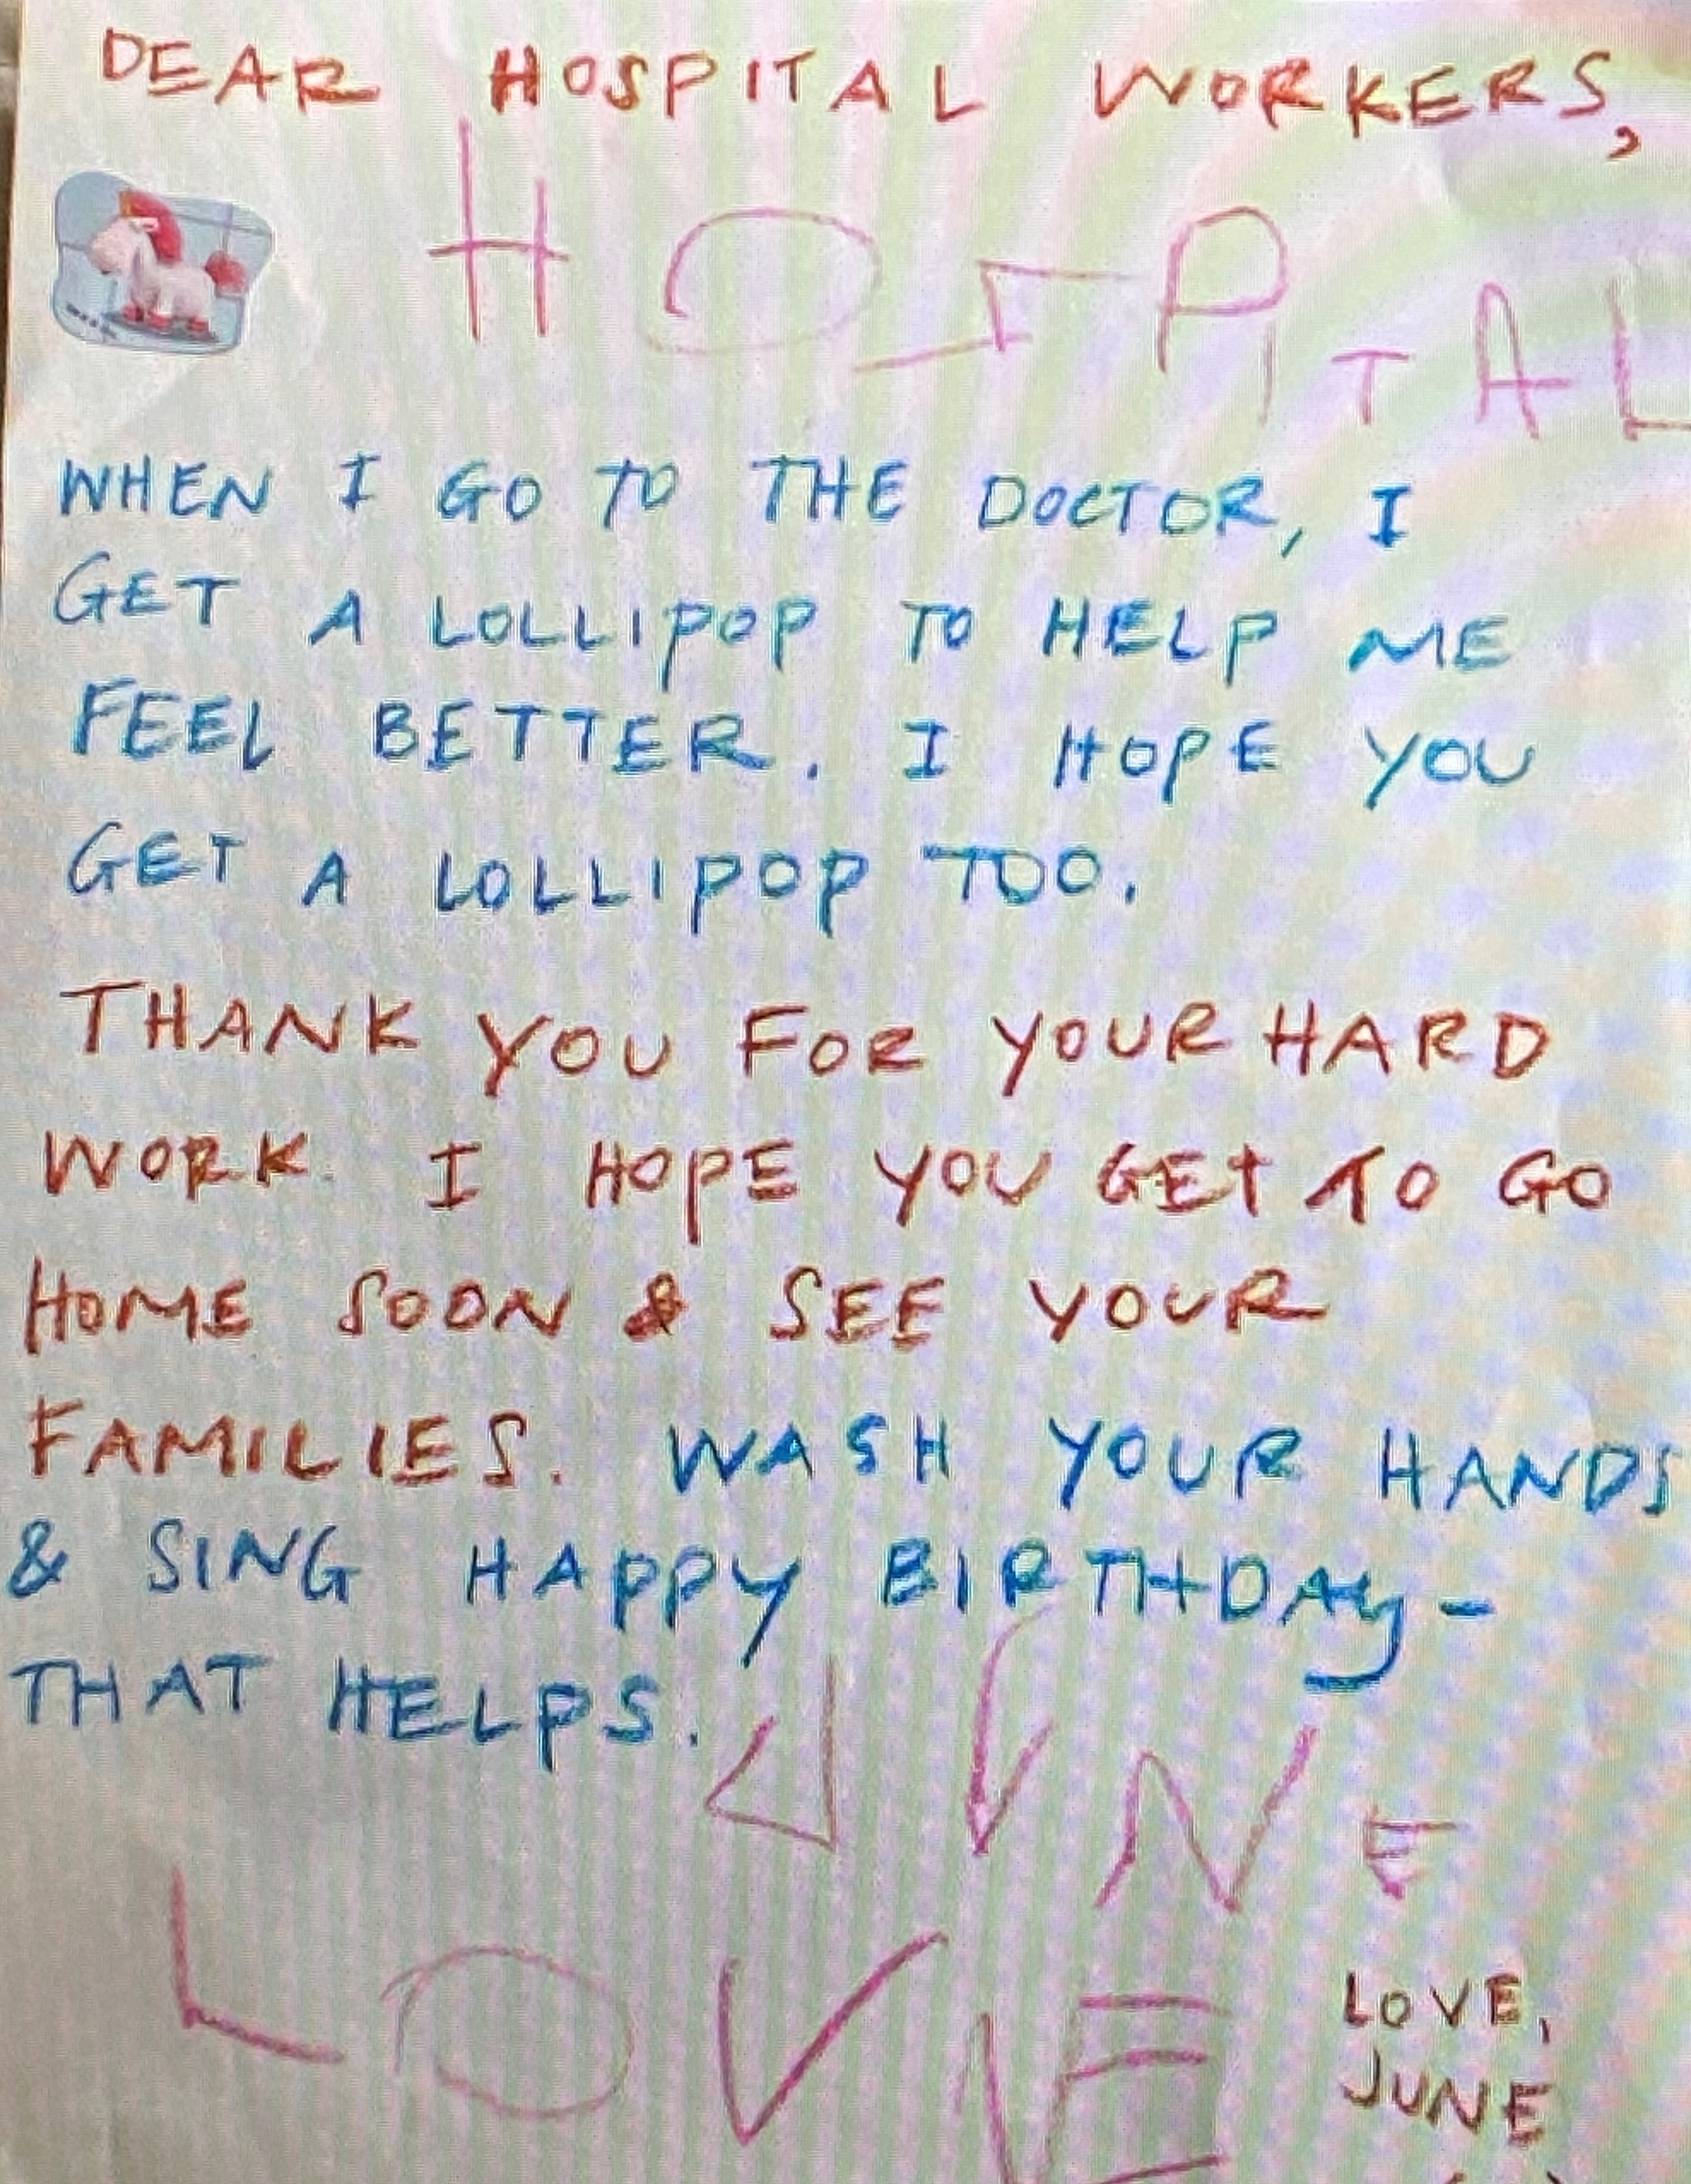 DEAR HOSPITAL WORKERS,
HOSPITAL
WHEN I GO TO THE DOCTOR, I
GET A LOLLIPOP TO HELP ME
FEEL BETTER. I HOPE YOU
GET A LOLLIPOP TOO.
THANK YOU FOR YOUR HARD
WORK. I HOPE YOU GET TO GO
HOME SOON & SEE YOUR
FAMILIES. WASH YOUR HANDS
& SING HAPPY BIRTHDAY-
THAT HELPS.
JUNE
LOVE
LOVE,
JUNE